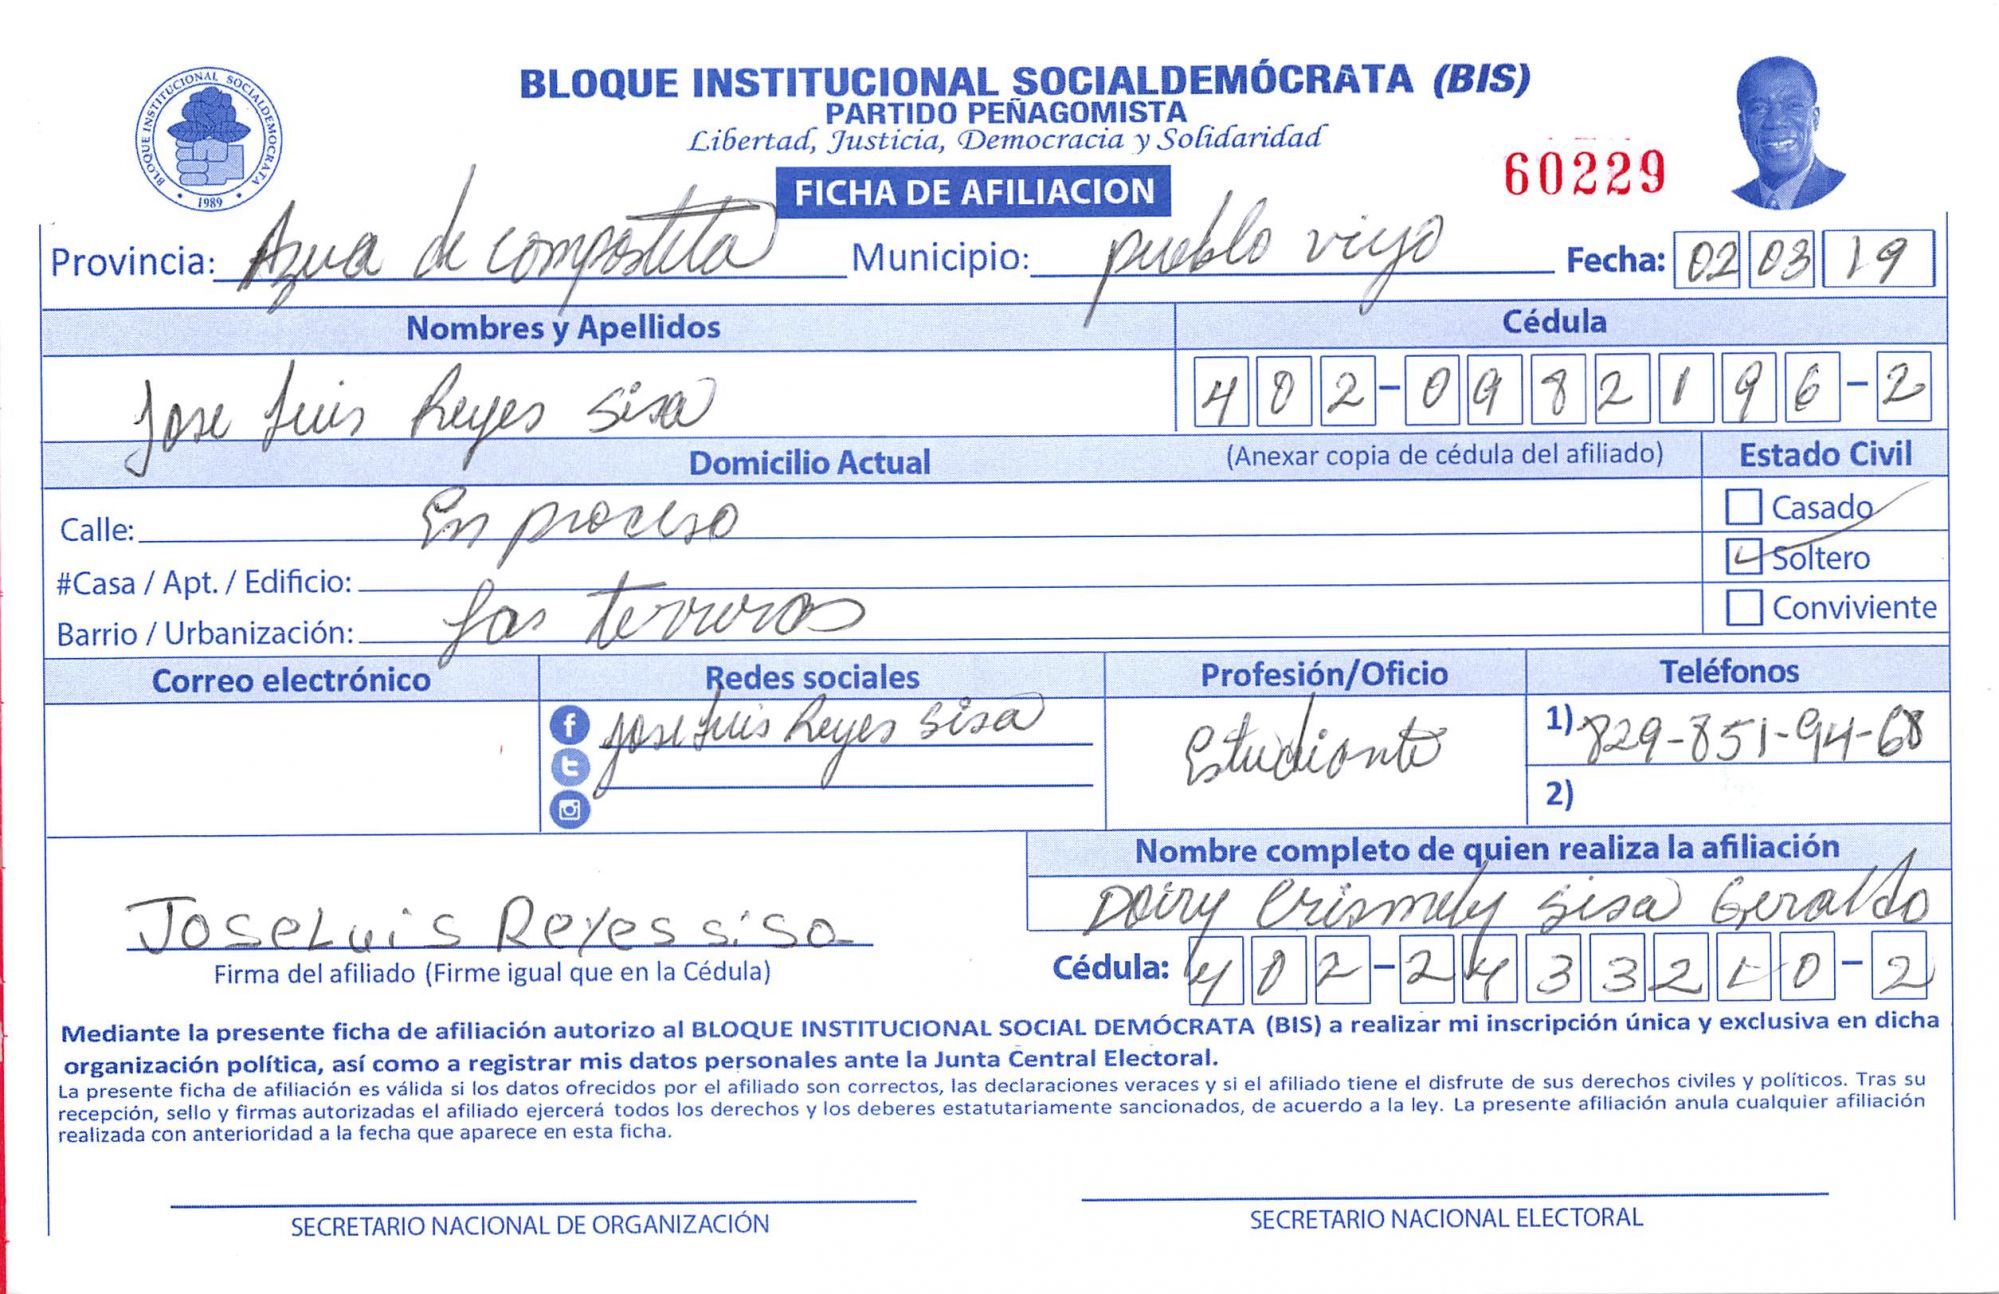 BLOQUE INSTITUCIONAL SOCIALDEMOCRATA
1989
BLOQUE INSTITUCIONAL SOCIALDEMÓCRATA (BIS)
PARTIDO PEÑAGOMISTA
Libertad, Justicia, Democracia y Solidaridad
FICHA DE AFILIACION
60229
Provincia: Azua de compostela Municipio: pueblo viejo Fecha: 02 03 19
Nombres y Apellidos Cédula
Jose Luis Reyes Sisa 402-0982196-2
Domicilio Actual (Anexar copia de cédula del afiliado) Estado Civil
Calle: En proceso Casado
#Casa / Apt. / Edificio: Soltero
Barrio / Urbanización: Las terreras Conviviente
Correo electrónico Redes sociales Profesión/Oficio Teléfonos
Jose Luis Reyes Sisa Estudiante 1) 829-851-94-68
2)
Nombre completo de quien realiza la afiliación
Doiry Crismely Sisa Geraldo
JoseLuis Reyes siso
Firma del afiliado (Firme igual que en la Cédula) Cédula: 402-2433210-2
Mediante la presente ficha de afiliación autorizo al BLOQUE INSTITUCIONAL SOCIAL DEMÓCRATA (BIS) a realizar mi inscripción única y exclusiva en dicha
organización política, así como a registrar mis datos personales ante la Junta Central Electoral.
La presente ficha de afiliación es válida si los datos ofrecidos por el afiliado son correctos, las declaraciones veraces y si el afiliado tiene el disfrute de sus derechos civiles y políticos. Tras su
recepción, sello y firmas autorizadas el afiliado ejercerá todos los derechos y los deberes estatutariamente sancionados, de acuerdo a la ley. La presente afiliación anula cualquier afiliación
realizada con anterioridad a la fecha que aparece en esta ficha.
SECRETARIO NACIONAL DE ORGANIZACIÓN SECRETARIO NACIONAL ELECTORAL